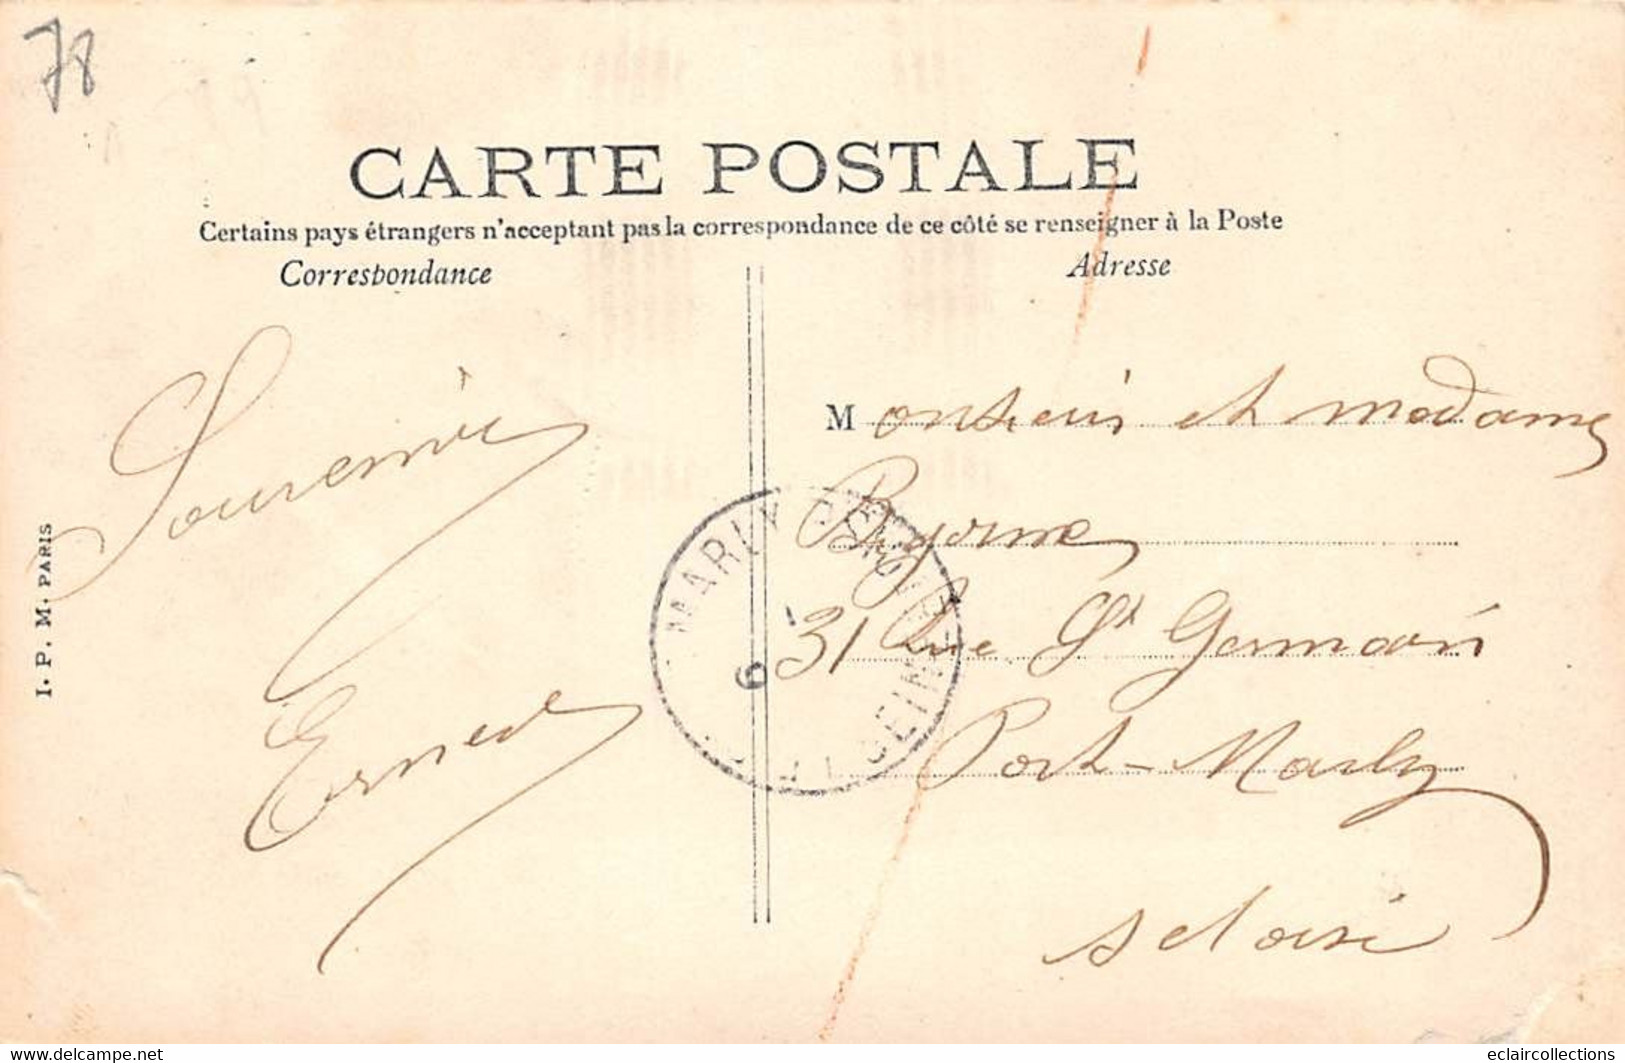 78
CARTE POSTALE
Certains pays étrangers n'acceptant pas la correspondance de ce côté se renseigner à la Poste
Correspondance
Adresse
Souvenir
Ernest
Monsieur et madame
31 Rue St Germain
Port-Marly
s et oise
MARLY
SEINE
6
I. P. M. PARIS
www.delcampe.net
eclaircollections